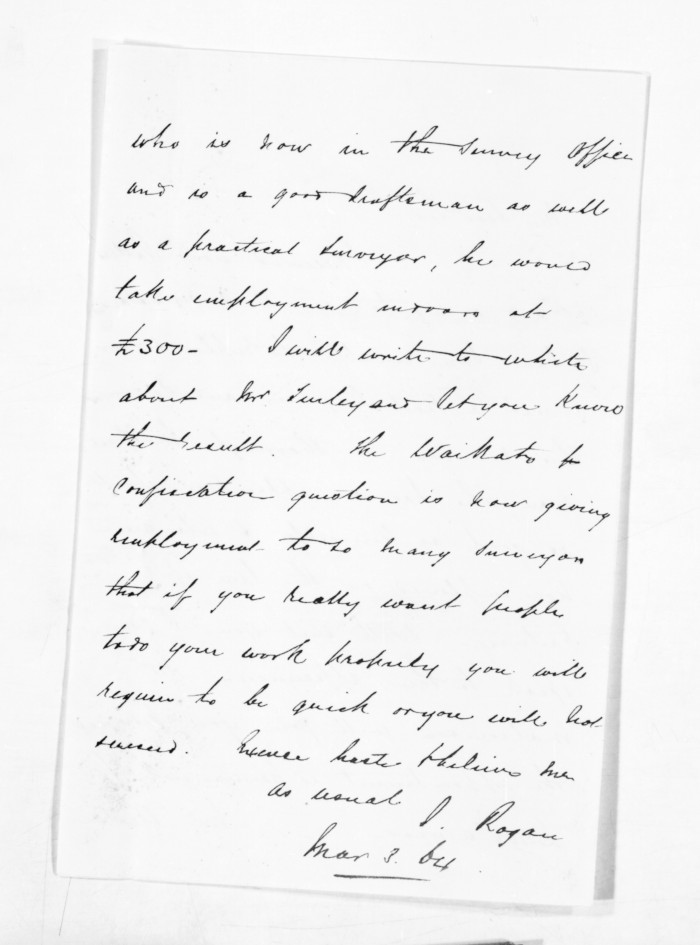 who is now in the Survey Office
and is a good draftsman as well
as a practical Surveyor, he would
take employment indoors at
£300 - I will write to White
about Mr. Turley and let you know
the result. The Waikato
Confiscation question is now giving
employment to so many Surveyors
that if you really want people
to do your work properly you will
require to be quick or you will not
succeed. Excuse haste & believe me
as usual
J. Rogan
Mar 3. 64